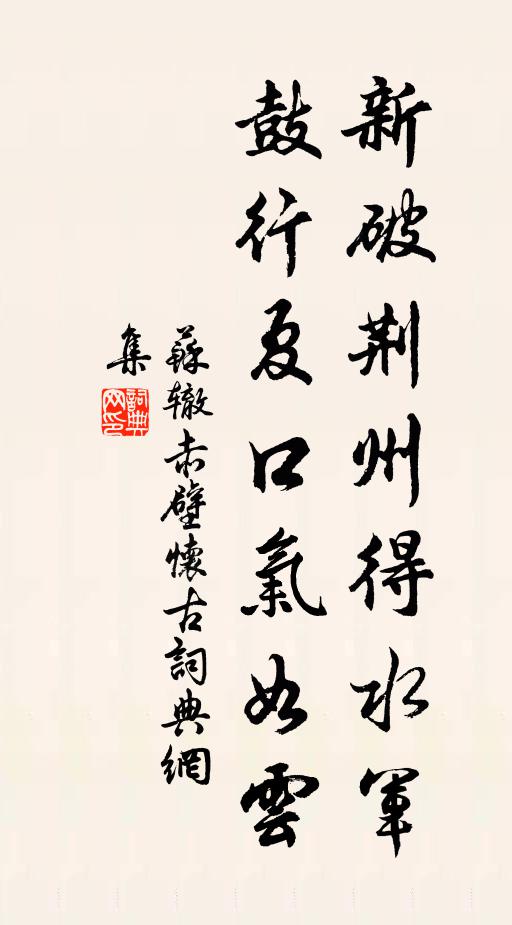 新破荆州得水軍
鼓行夏口氣如雲
蘇轍赤壁懷古詞典網
集
詞典
网印